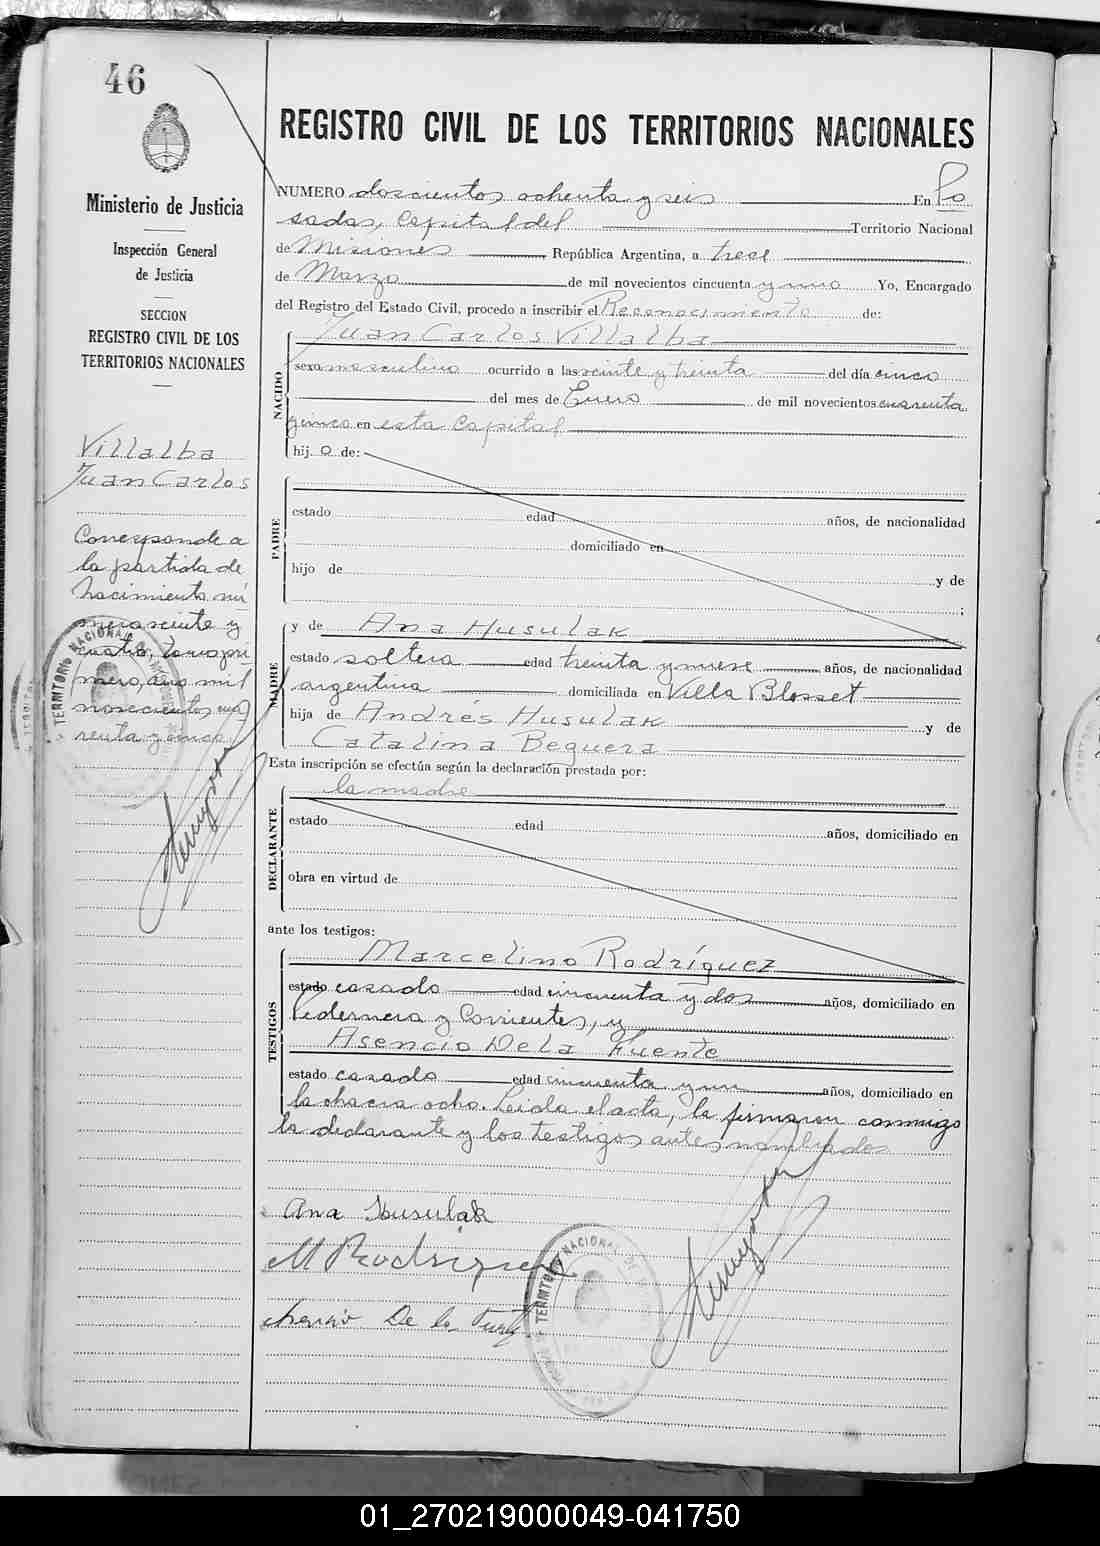 46
REGISTRO CIVIL DE LOS TERRITORIOS NACIONALES
Ministerio de Justicia
Inspección General
de Justicia
SECCION
REGISTRO CIVIL DE LOS
TERRITORIOS NACIONALES
Villalba
Juan Carlos
Corresponde a
la partida de
nacimiento nú
mero veinte y
cuatro, tomo pri
mero, año mil
novecientos cua
renta y cinco
NUMERO doscientos ochenta y seis En Po
sadas, Capital del Territorio Nacional
de Misiones República Argentina, a trece
de Marzo de mil novecientos cincuenta y uno Yo, Encargado
del Registro del Estado Civil, procedo a inscribir el Reconocimiento de:
Juan Carlos Villalba
NACIDO
sexo masculino ocurrido a las veinte y treinta del día cinco
del mes de Enero de mil novecientos cuarenta
y cinco en esta Capital
hij. o de:
PADRE
estado edad años, de nacionalidad
domiciliado en
hijo de y de
;
MADRE
y de Ana Husulak
estado soltera edad treinta y nueve años, de nacionalidad
argentina domiciliada en Villa Blosset
hija de Andrés Husulak y de
Catalina Beguera
Esta inscripción se efectúa según la declaración prestada por:
la madre
DECLARANTE
estado edad años, domiciliado en
obra en virtud de
ante los testigos:
Marcelino Rodríguez
TESTIGOS
estado casado edad cincuenta y dos años, domiciliado en
Pedernera y Corrientes, y
Asencio De la Fuente
estado casado edad cincuenta y un años, domiciliado en
la chacra ocho. Leida el acta, la firmaron conmigo
la declarante y los testigos antes nombrados
Ana Husulak
M Rodriguez
Asencio De la Fuente
TERRITORIO NACIONAL DE MISIONES
01_270219000049-041750